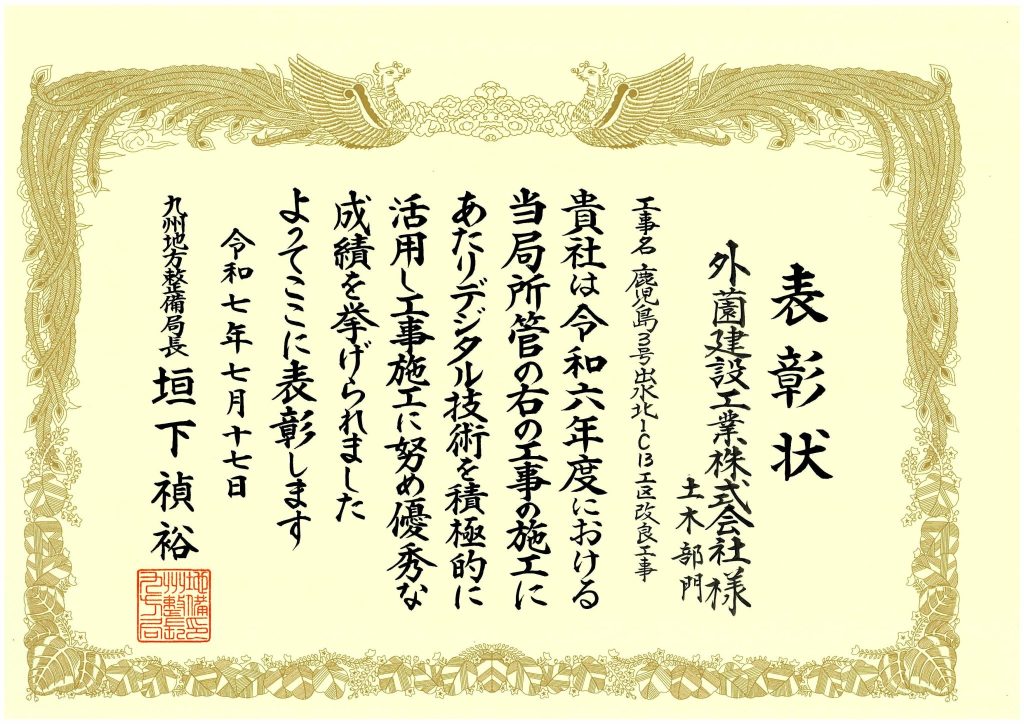 表彰状
外薗建設工業株式会社様
土木部門
工事名 鹿児島3号出水北IC13工区改良工事
貴社は令和六年度における
当局所管の右の工事の施工に
あたりデジタル技術を積極的に
活用し工事施工に努め優秀な
成績を挙げられました
よってここに表彰します
令和七年七月十七日
九州地方整備局長 垣下禎裕